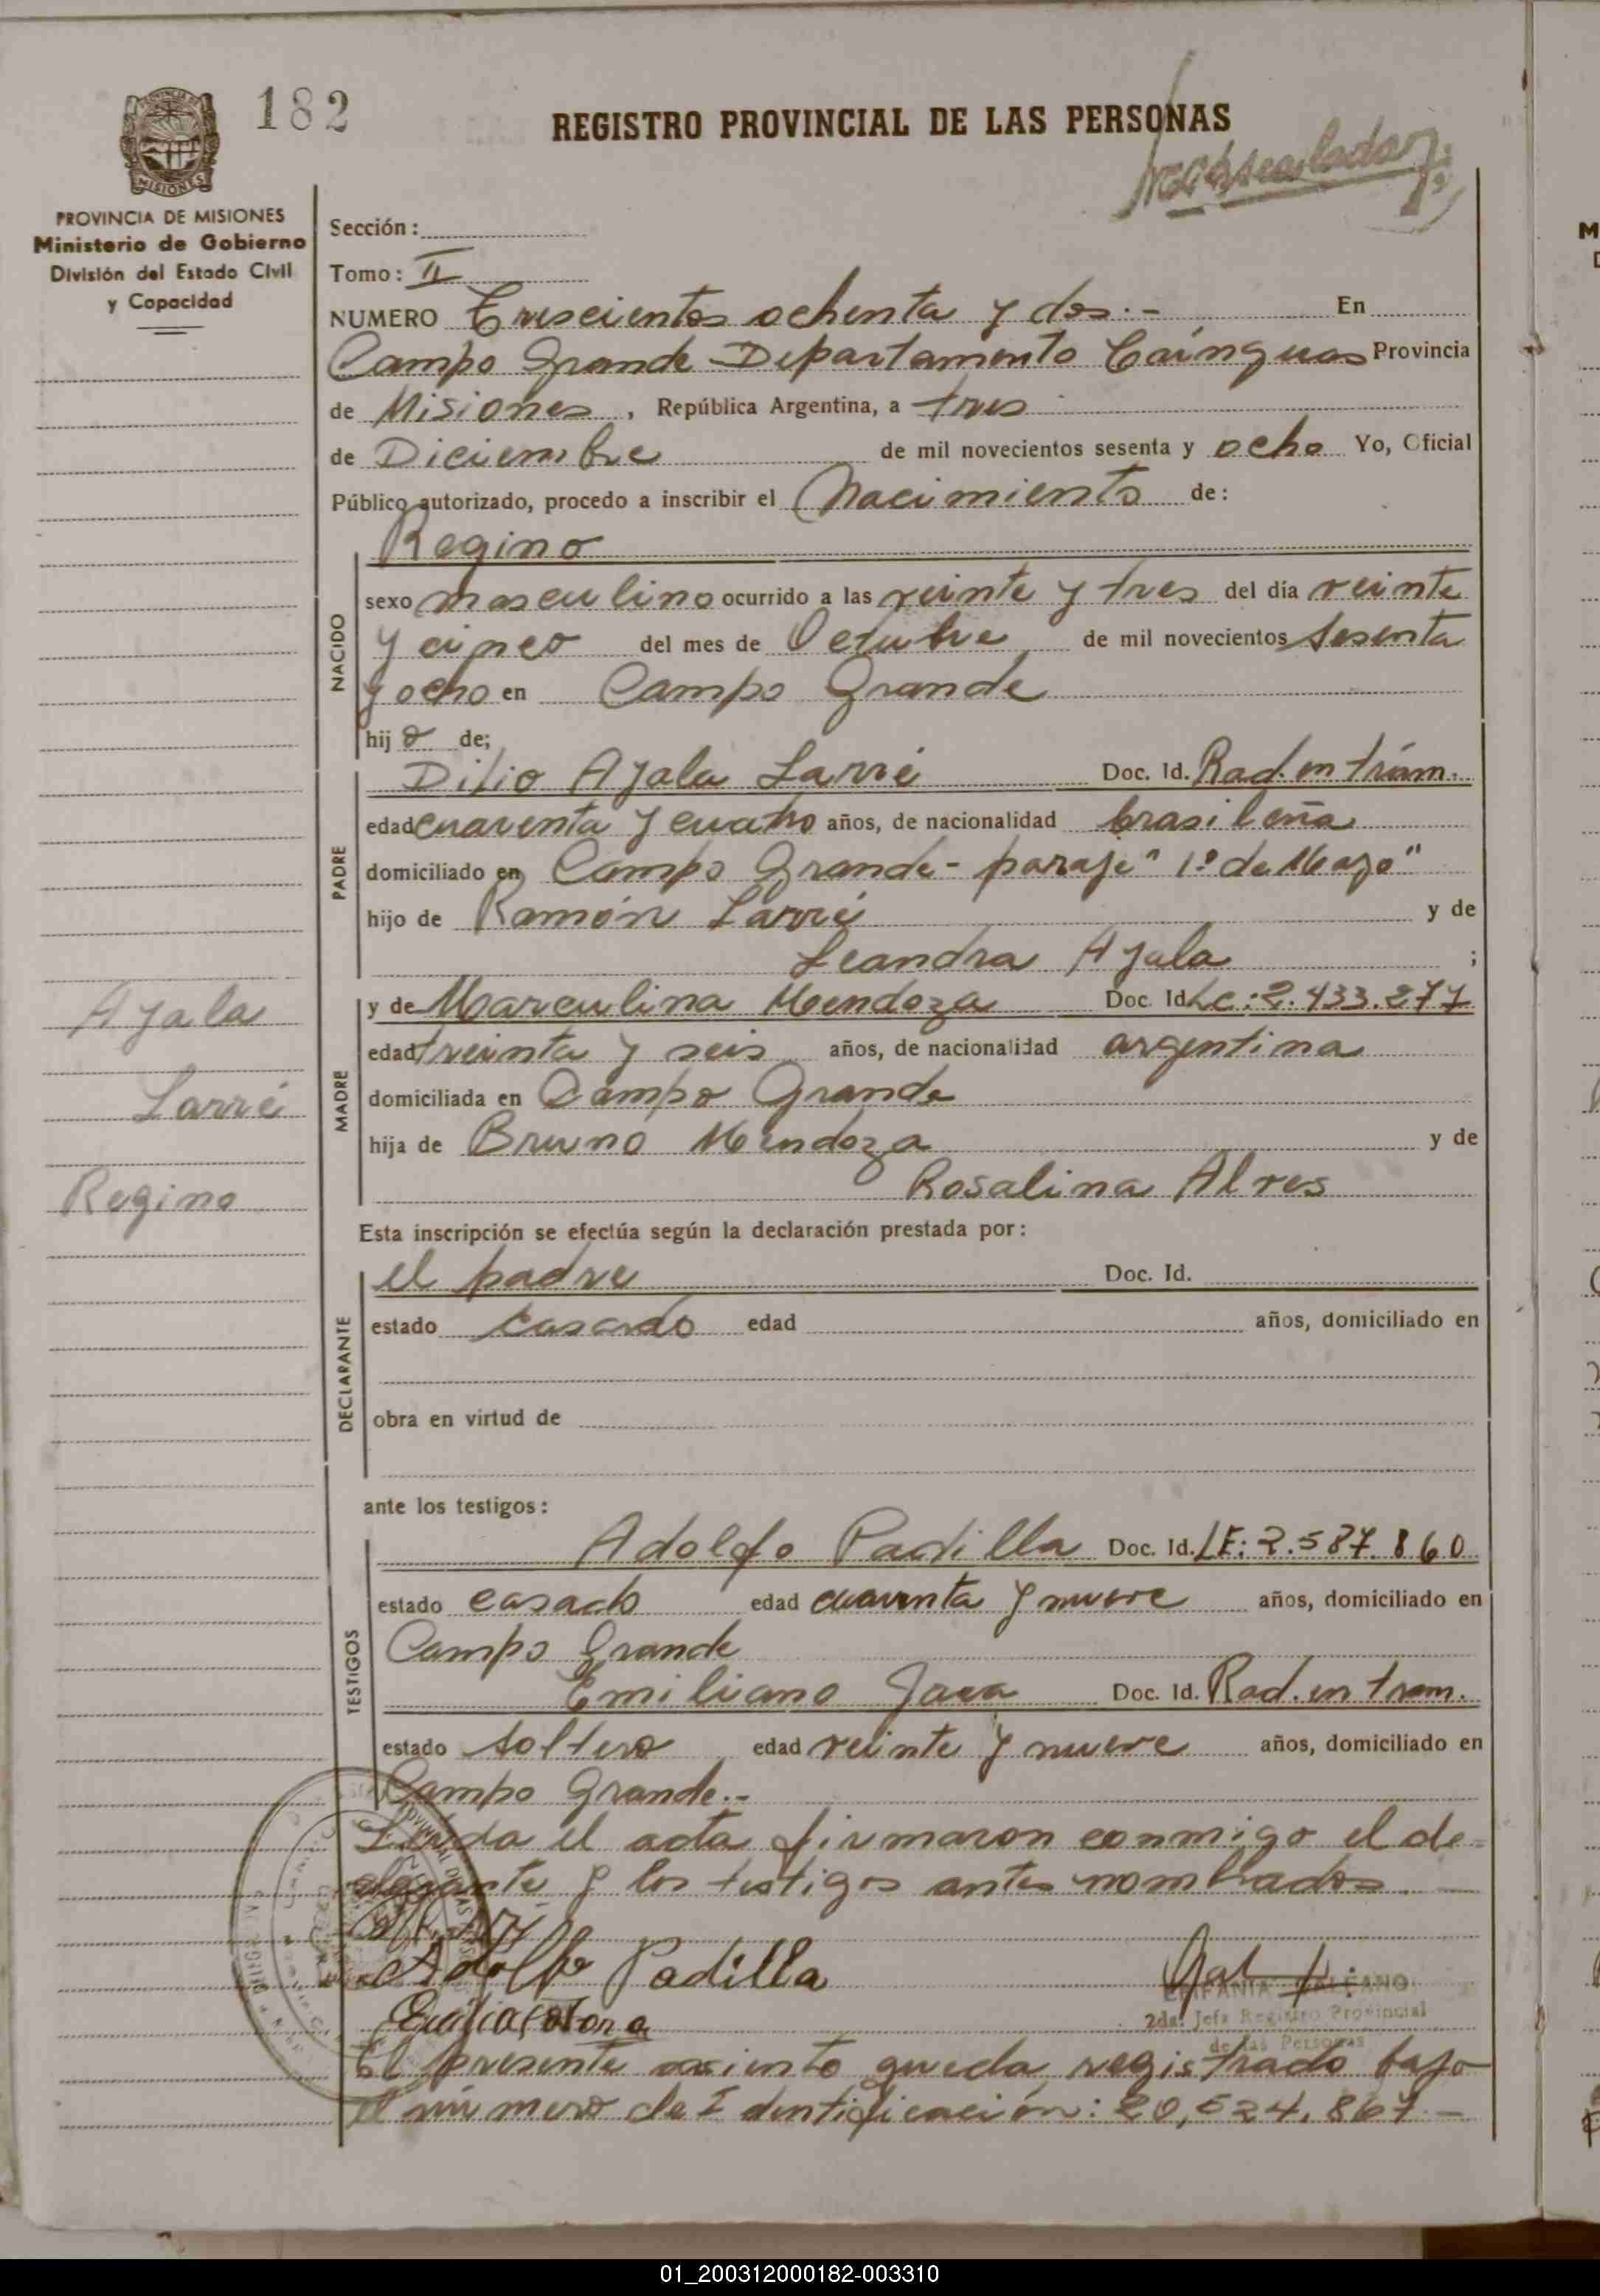 182
REGISTRO PROVINCIAL DE LAS PERSONAS
PROVINCIA DE MISIONES
Ministerio de Gobierno
División del Estado Civil
y Capacidad
Sección:
Tomo: II
NUMERO Trescientos ochenta y dos.- En
Campo Grande Departamento Cainguas Provincia
de Misiones, República Argentina, a tres
de Diciembre de mil novecientos sesenta y ocho Yo, Oficial
Público autorizado, procedo a inscribir el Nacimiento de:
NACIDO
Regino
sexo masculino ocurrido a las veinte y tres del día veinte
y cinco del mes de Octubre de mil novecientos sesenta
y ocho en Campo Grande
hijo de;
PADRE
Ayala Larré Doc. Id. Rad. en trám.
edad cuarenta y cuatro años, de nacionalidad brasileña
domiciliado en Campo Grande - paraje "1º de Mayo"
hijo de Ramón Larré y de
Leandra Ayala ;
MADRE
y de Marculina Mendoza Doc. Id. Lc: 2.433.277
edad treinta y seis años, de nacionalidad argentina
domiciliada en Campo Grande
hija de Bruno Mendoza y de
Rosalina Alves
Ayala
Larré
Regino
Esta inscripción se efectúa según la declaración prestada por:
DECLARANTE
el padre Doc. Id.
estado casado edad años, domiciliado en
obra en virtud de
ante los testigos:
TESTIGOS
Adolfo Padilla Doc. Id. LE: 2.587.860
estado casado edad cuarenta y nueve años, domiciliado en
Campo Grande
Emiliano Doc. Id. Rad. en tram.
estado soltero edad veinte y nueve años, domiciliado en
Campo Grande.-
Leída el acta firmaron conmigo el de-
clarante y los testigos antes nombrados
Adolfo Padilla
EPIFANIA GALEANO
2da. Jefa Registro Provincial
de las Personas
El presente asiento queda registrado bajo
el número de Identificación: 20,624,867 -
01_200312000182-003310